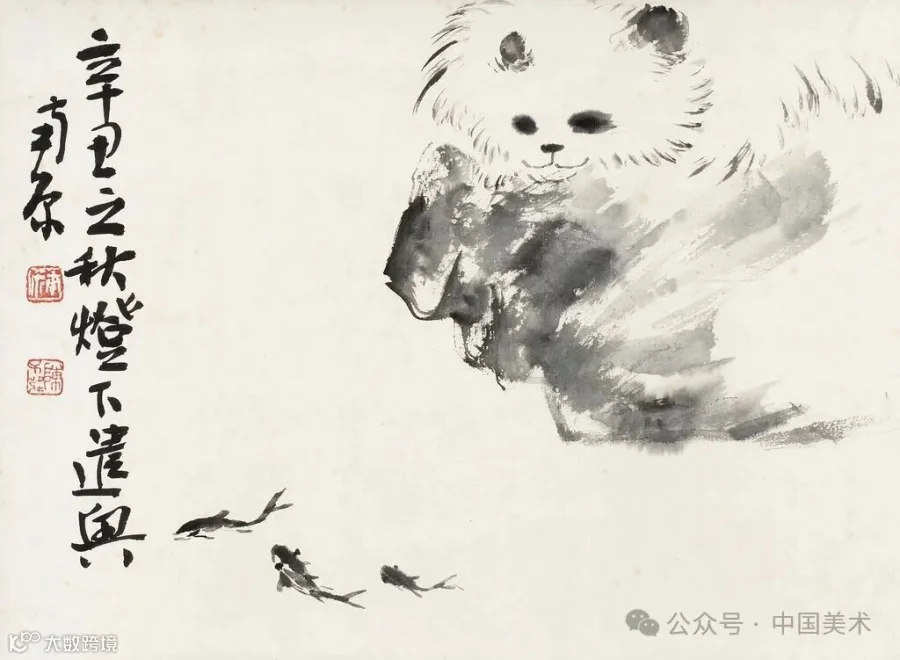 辛丑之秋燈下遣興
南原
公众号 · 中国美术
大数跨境